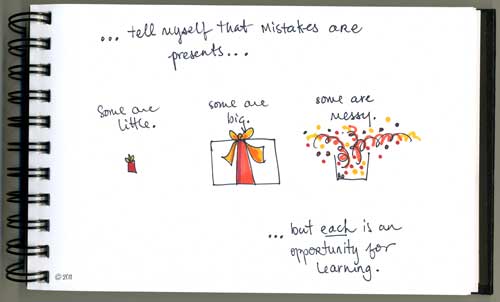 ... tell myself that mistakes are
presents...
some are
little.
some are
big.
some are
messy.
... but each is an
opportunity for
learning.
© 2011